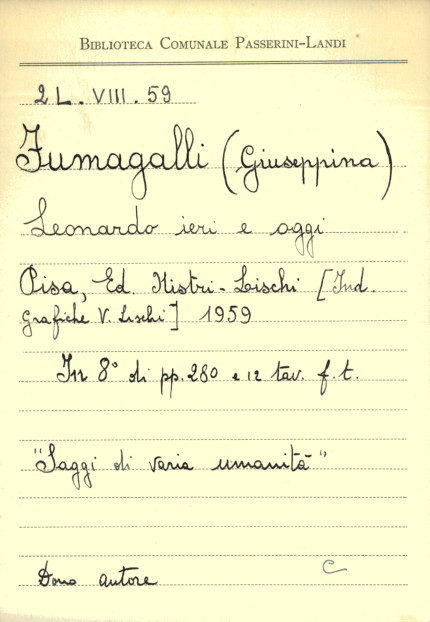 BIBLIOTECA COMUNALE PASSERINI-LANDI
2L.VIII.59
Fumagalli (Giuseppina)
Leonardo ieri e oggi
Pisa, Ed. Nistri-Lischi [Ind.
Grafiche V. Lischi] 1959
In 8° di pp. 280 e 12 tav. f.t.
"Saggi di varia umanità"
Dono autore
C